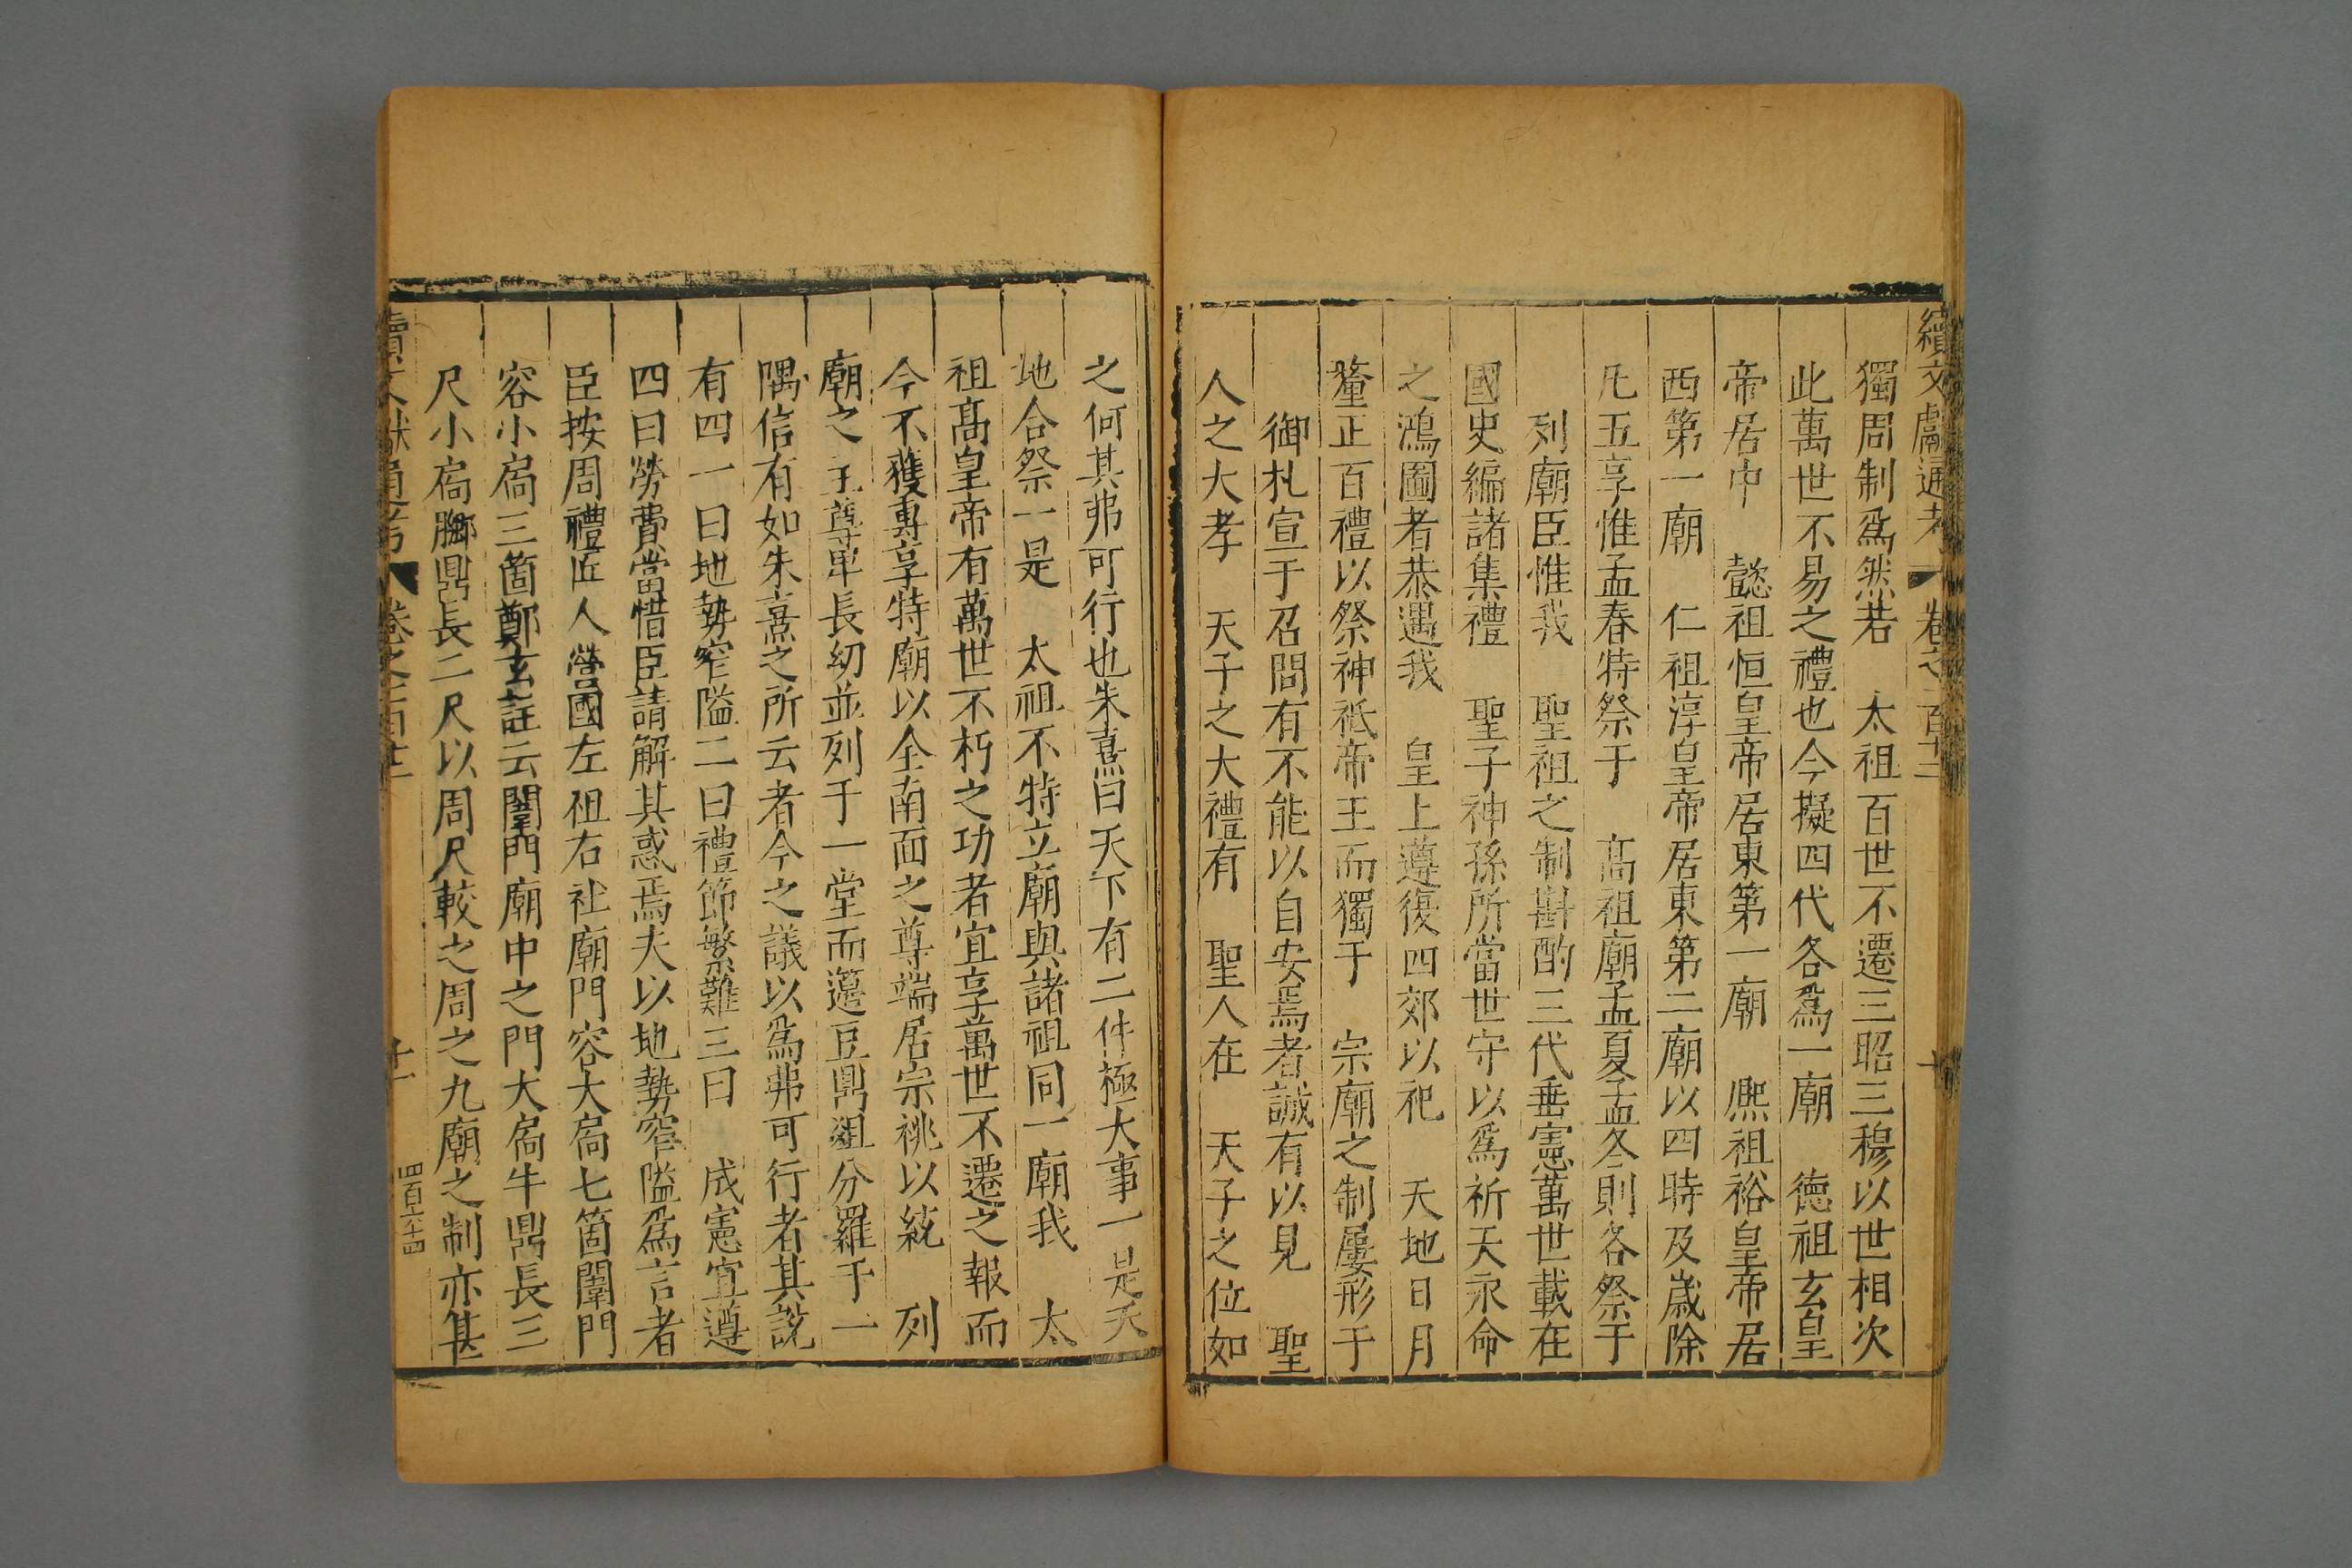 續文獻通考 卷之一百十三 十
獨周制爲然若 太祖百世不遷三昭三穆以世相次
此萬世不易之禮也今擬四代各爲一廟 德祖玄皇
帝居中 懿祖恒皇帝居東第一廟 熈祖裕皇帝居
西第一廟 仁祖淳皇帝居東第二廟以四時及歲除
凡五享惟孟春特祭于 髙祖廟孟夏孟冬則各祭于
列廟臣惟我 聖祖之制斟酌三代垂憲萬世載在
國史編諸集禮 聖子神孫所當世守以爲祈天永命
之鴻圖者恭遇我 皇上遵復四郊以祀 天地日月
釐正百禮以祭神祗帝王而獨于 宗廟之制屢形于
御札宣于召問有不能以自安焉者誠有以見 聖
人之大孝 天子之大禮有 聖人在 天子之位如
之何其弗可行也朱熹曰天下有二件極大事一是天
地合祭一是 太祖不特立廟與諸祖同一廟我 太
祖髙皇帝有萬世不朽之功者宜享萬世不遷之報而
今不獲專享特廟以全南面之尊端居宗祧以統 列
廟之主尊卑長幼並列于一堂而籩豆鼎俎分羅于一
隅信有如朱熹之所云者今之議以爲弗可行者其說
有四一曰地勢窄隘二曰禮節繁難三曰 成憲宜遵
四曰勞費當惜臣請解其惑焉夫以地勢窄隘爲言者
臣按周禮匠人營國左祖右社廟門容大扃七箇闈門
容小扃三箇鄭玄註云闈門廟中之門大扃牛鼎長三
尺小扃膷鼎長二尺以周尺較之周之九廟之制亦甚
續文獻通考 卷之一百十三 十一